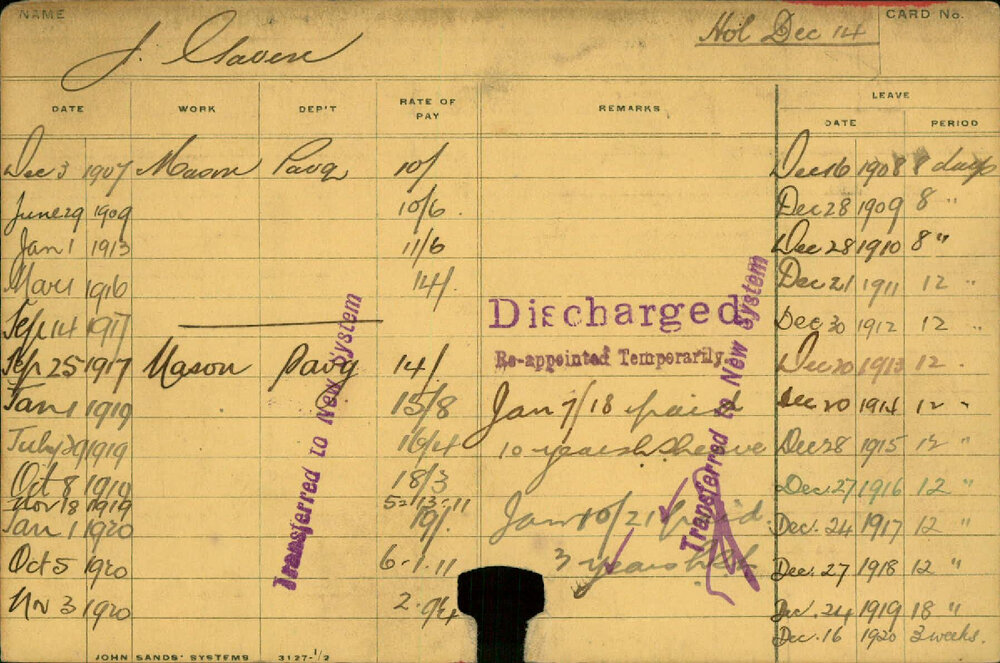 NAME
CARD No.
Hol Dec 14
J. Claven
DATE WORK DEP'T RATE OF PAY REMARKS LEAVE
DATE PERIOD
Dec 3 1907 Mason Pavg 10/ Dec 16 1908 8 days
June 29 1909 10/6 Dec 28 1909 8 "
Jan 1 1913 11/6 Dec 28 1910 8 "
Mar 1 1916 14/ Dec 21 1911 12 "
Sep 14 1917 Discharged Dec 30 1912 12 "
Sep 25 1917 Mason Pavg 14/ Re-appointed Temporarily. Dec 20 1913 12 "
Jan 1 1919 15/8 Jan 7/18 paid Dec 20 1914 12 "
July 1919 16/4 10 years Dec 28 1915 12 "
Oct 8 1919 18/3 Dec. 27 1916 12 "
Nov 18 1919 5-13-11
Jan 1 1920 19/. Jan 10/21 paid Dec. 24 1917 12 "
Oct 5 1920 6-1-11 3 years Dec. 27 1918 12 "
Nv 3 1920 Dec. 24 1919 18 "
Dec. 16 1920 3 weeks.
Transferred to New System
Transferred to New System
JOHN SANDS' SYSTEMS 3127-1/2